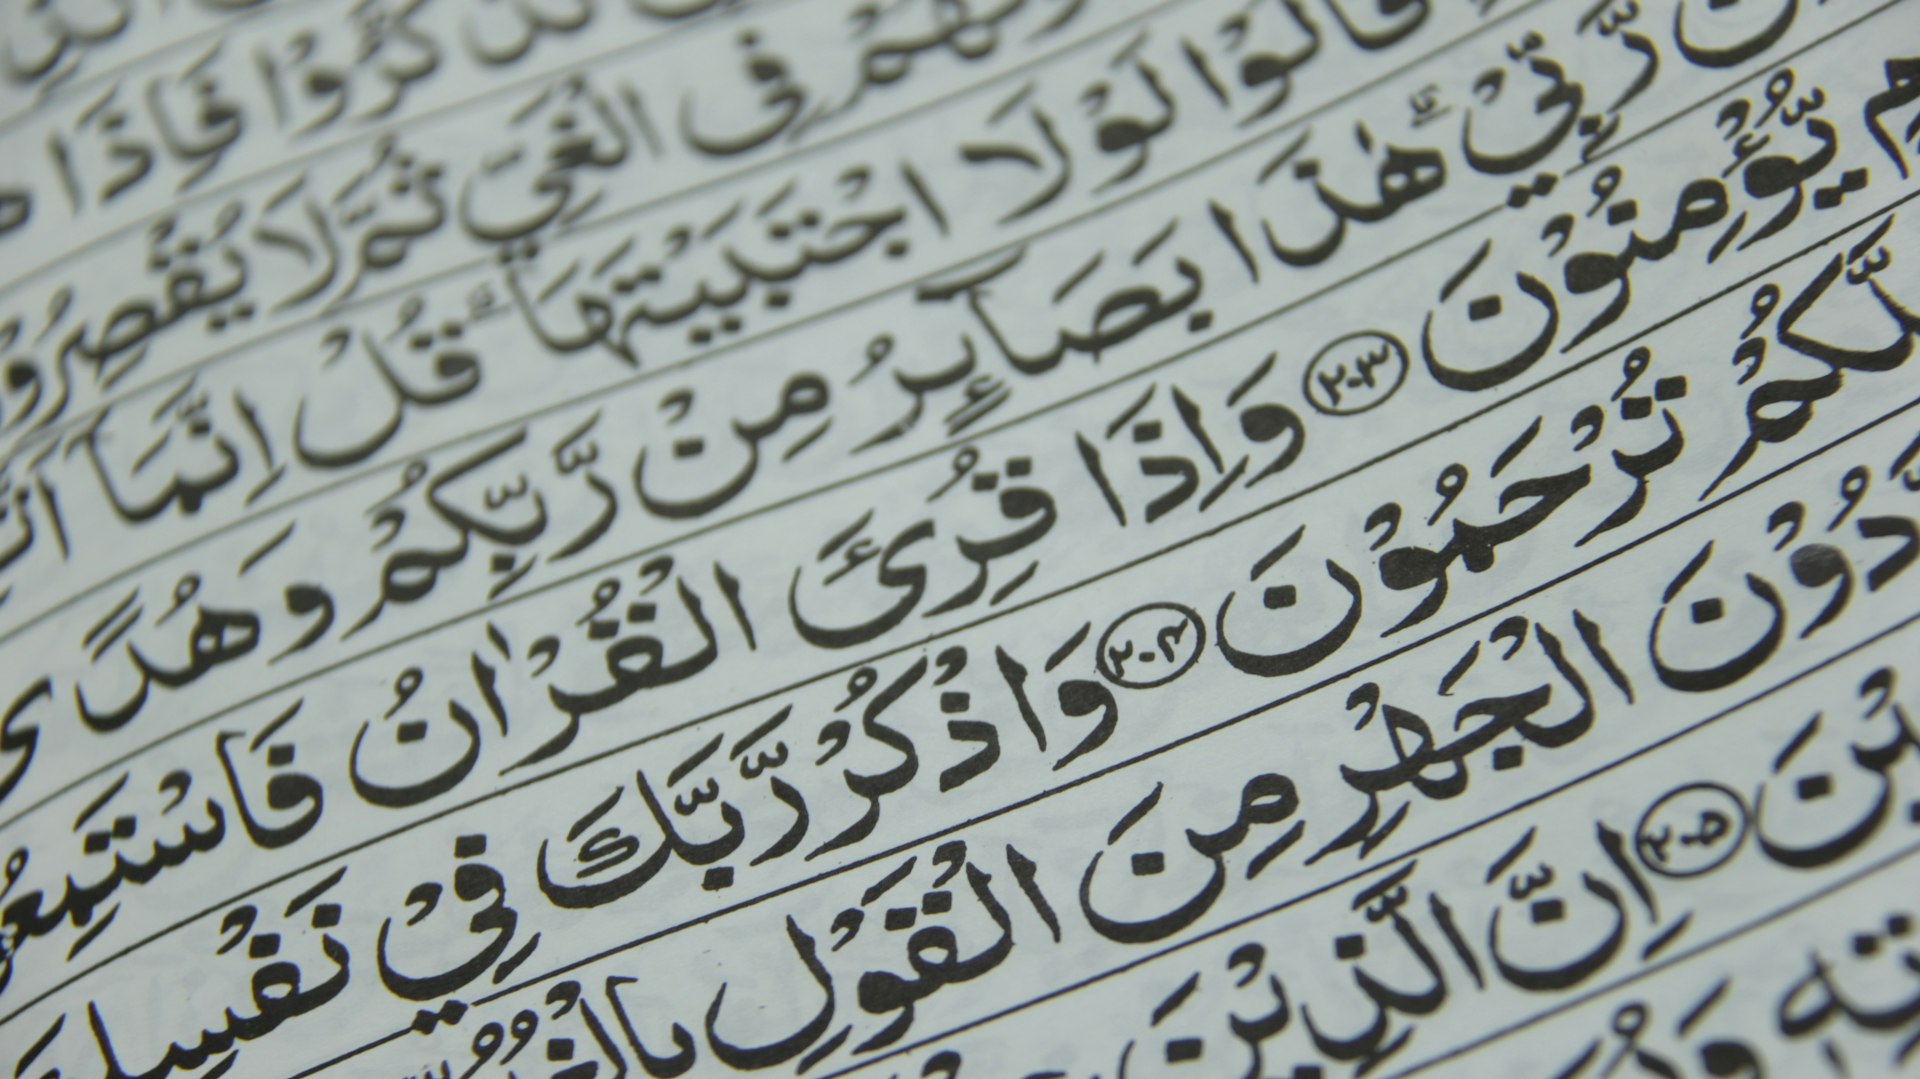 كَّرُوْا فَاِذَا
فِى الْغَيِّ ثُمَّ لَا يُقْصِرُوْ
قَالُوْا لَوْلَا اجْتَبَيْتَهَاۗ قُلْ اِنَّمَآ
رَّبِّيْۗ هٰذَا بَصَاۤىِٕرُ مِنْ رَّبِّكُمْ وَهُدًى
يُّؤْمِنُوْنَ ٢٠٣ وَاِذَا قُرِئَ الْقُرْاٰنُ فَاسْتَمِعُ
لَّكُمْ تُرْحَمُوْنَ ٢٠٤ وَاذْكُرْ رَّبَّكَ فِيْ نَفْسِكَ
دُوْنَ الْجَهْرِ مِنَ الْقَوْلِ بِالْغُدُوِّ
يْنَ ٢٠٥ اِنَّ الَّذِيْنَ
تِهٖ